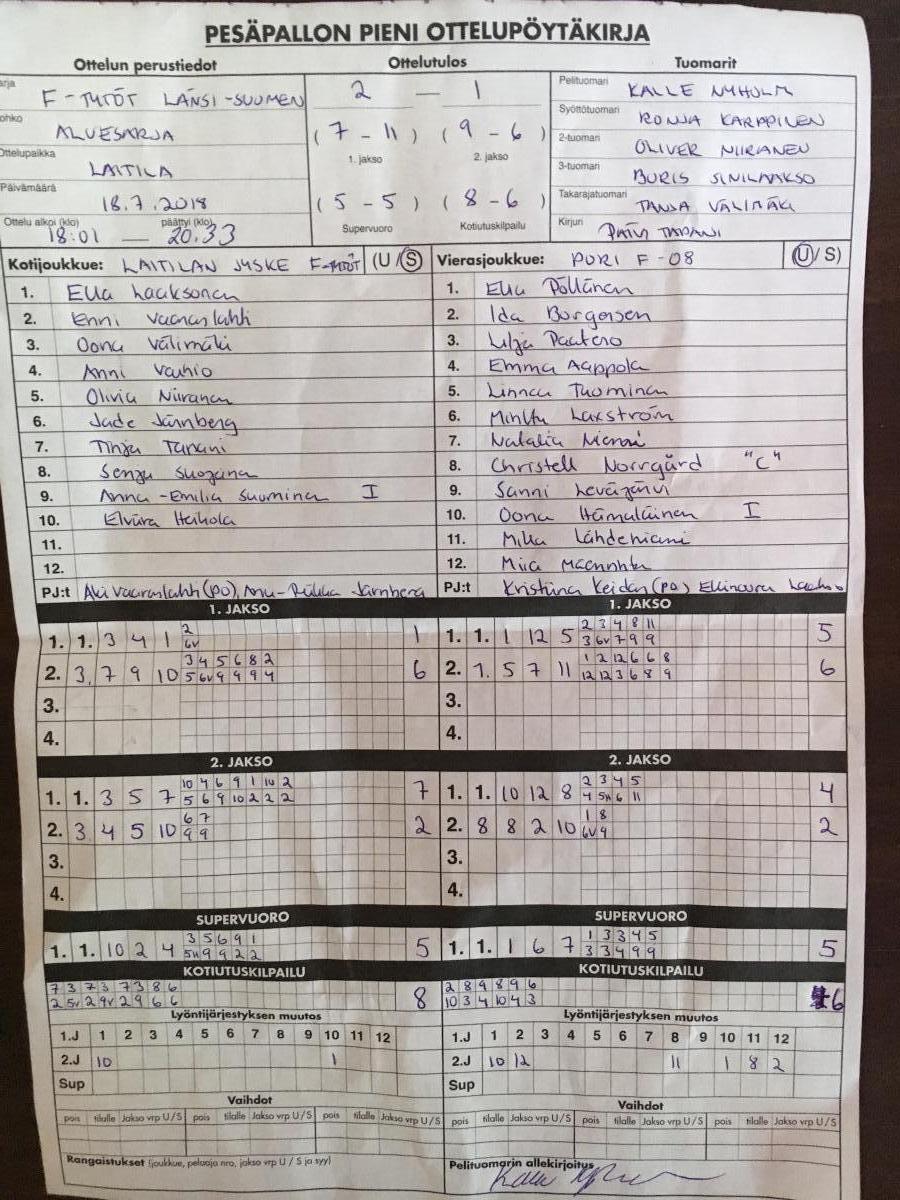 PESÄPALLON PIENI OTTELUPÖYTÄKIRJA
Ottelun perustiedot Ottelutulos Tuomarit
arja F-TYTÖT LÄNSI-SUOMEN 2 — 1 Pelituomari KALLE NYHOLM
ohko ALUESARJA (7 - 11) (9 - 6) Syöttötuomari RONJA KARPPINEN
1. jakso 2. jakso 2-tuomari OLIVER NIIRANEN
Ottelupaikka LAITILA 3-tuomari BORIS SINILAAKSO
Päivämäärä 18.7.2018 (5 - 5) (8 - 6) Takarajatuomari TANJA VÄLIMÄKI
Ottelu alkoi (klo) 18:01 — päättyi (klo) 20.33 Supervuoro Kotiutuskilpailu Kirjuri PÄIVI TAPANI
Kotijoukkue: LAITILAN JYSKE F-TYTÖT (U/S) Vierasjoukkue: PORI F-08 (U/S)
1. Ella Laaksonen 1. Ella Pöllänen
2. Enni Vaaraslahti 2. Ida Borgersen
3. Oona Välimäki 3. Lilja Paatero
4. Anni Vauhio 4. Emma Aappola
5. Olivia Niiranen 5. Linnea Tuominen
6. Jade Järnberg 6. Minttu Laxström
7. Tinja Tapani 7. Natalia Niemi
8. Senja Suojana 8. Christell Norrgård "C"
9. Anna-Emilia Suominen I 9. Sanni Leväjärvi
10. Elviira Heikola 10. Oona Hämäläinen I
11. 11. Milla Lähdeniemi
12. 12. Miia
PJ:t Aki Vaaraslahti (PO), Anu-Riikka Järnberg PJ:t Kristiina Keidan (PO) Ellinoora
1. JAKSO 1. JAKSO
2 2 3 4 8 11
1. 1. 3 4 1 6v 1 1. 1. 1 12 5 3 6v 7 9 9 5
3 4 5 6 8 2 1 2 12 6 6 8
2. 3, 7 9 10 5 6v 9 9 9 4 6 2. 1. 5 7 11 12 12 3 6 8 9 6
3. 3.
4. 4.
2. JAKSO 2. JAKSO
10 4 6 9 1 10 2 2 3 4 5
1. 1. 3 5 7 5 6 9 10 2 2 2 7 1. 1. 10 12 8 4 5n 6 11 4
6 7 1 8
2. 3 4 5 10 9 9 2 2. 8 8 2 10 6v 9 2
3. 3.
4. 4.
SUPERVUORO SUPERVUORO
3 5 6 9 1 1 3 3 4 5
1. 1. 10 2 4 5n 9 9 2 2 5 1. 1. 1 6 7 3 3 4 9 9 5
KOTIUTUSKILPAILU KOTIUTUSKILPAILU
7 3 7 3 7 3 8 6 2 8 9 8 9 6
2 5v 2 9v 2 9 6 6 8 10 3 4 10 4 3 6
Lyöntijärjestyksen muutos Lyöntijärjestyksen muutos
1.J 1 2 3 4 5 6 7 8 9 10 11 12 1.J 1 2 3 4 5 6 7 8 9 10 11 12
2.J 10 1 2.J 10 12 11 1 8 2
Sup Sup
Vaihdot Vaihdot
pois tilalle Jakso vrp U/S pois tilalle Jakso vrp U/S pois tilalle Jakso vrp U/S pois tilalle Jakso vrp U/S pois tilalle Jakso vrp U/S pois tilalle Jakso vrp U/S
Rangaistukset (joukkue, pelaaja nro, jakso vrp U / S ja syy) Pelituomarin allekirjoitus